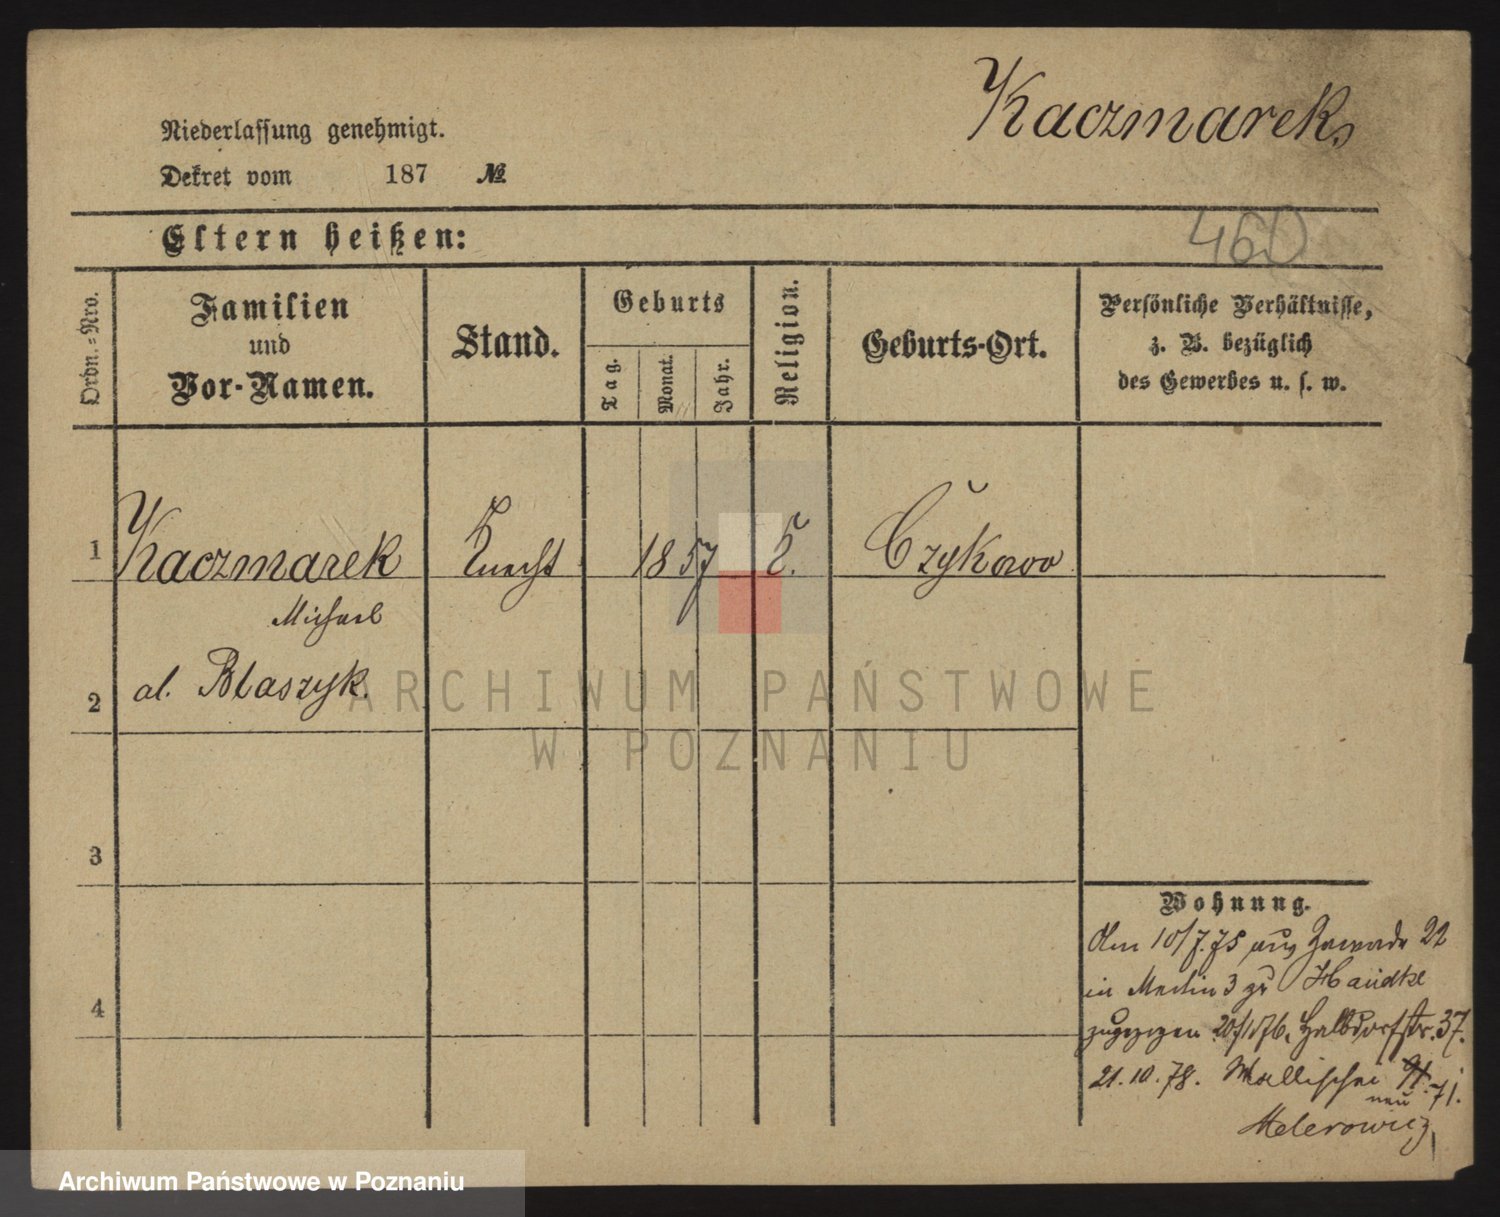 Kaczmarek,
Niederlassung genehmigt.
Dekret vom 187 №
460
Eltern heißen:
Ordn.=Nro.
Familien
und
Vor-Namen.
Stand.
Geburts
Tag.
Monat.
Jahr.
Religion.
Geburts-Ort.
Persönliche Verhältnisse,
z. B. bezüglich
des Gewerbes u. s. w.
1 Kaczmarek Knecht 1857 K. Czykowo
Michael
2 al. Blaszyk.
3
4
Wohnung.
10/7.75 aus Zawade 22
in 3 zu Handke
zugezogen 20/1 76. Halbdorfstr. 37.
21.10.78. Wallischei 71.
neu
Melerowicz
ARCHIWUM PAŃSTWOWE
W POZNANIU
Archiwum Państwowe w Poznaniu